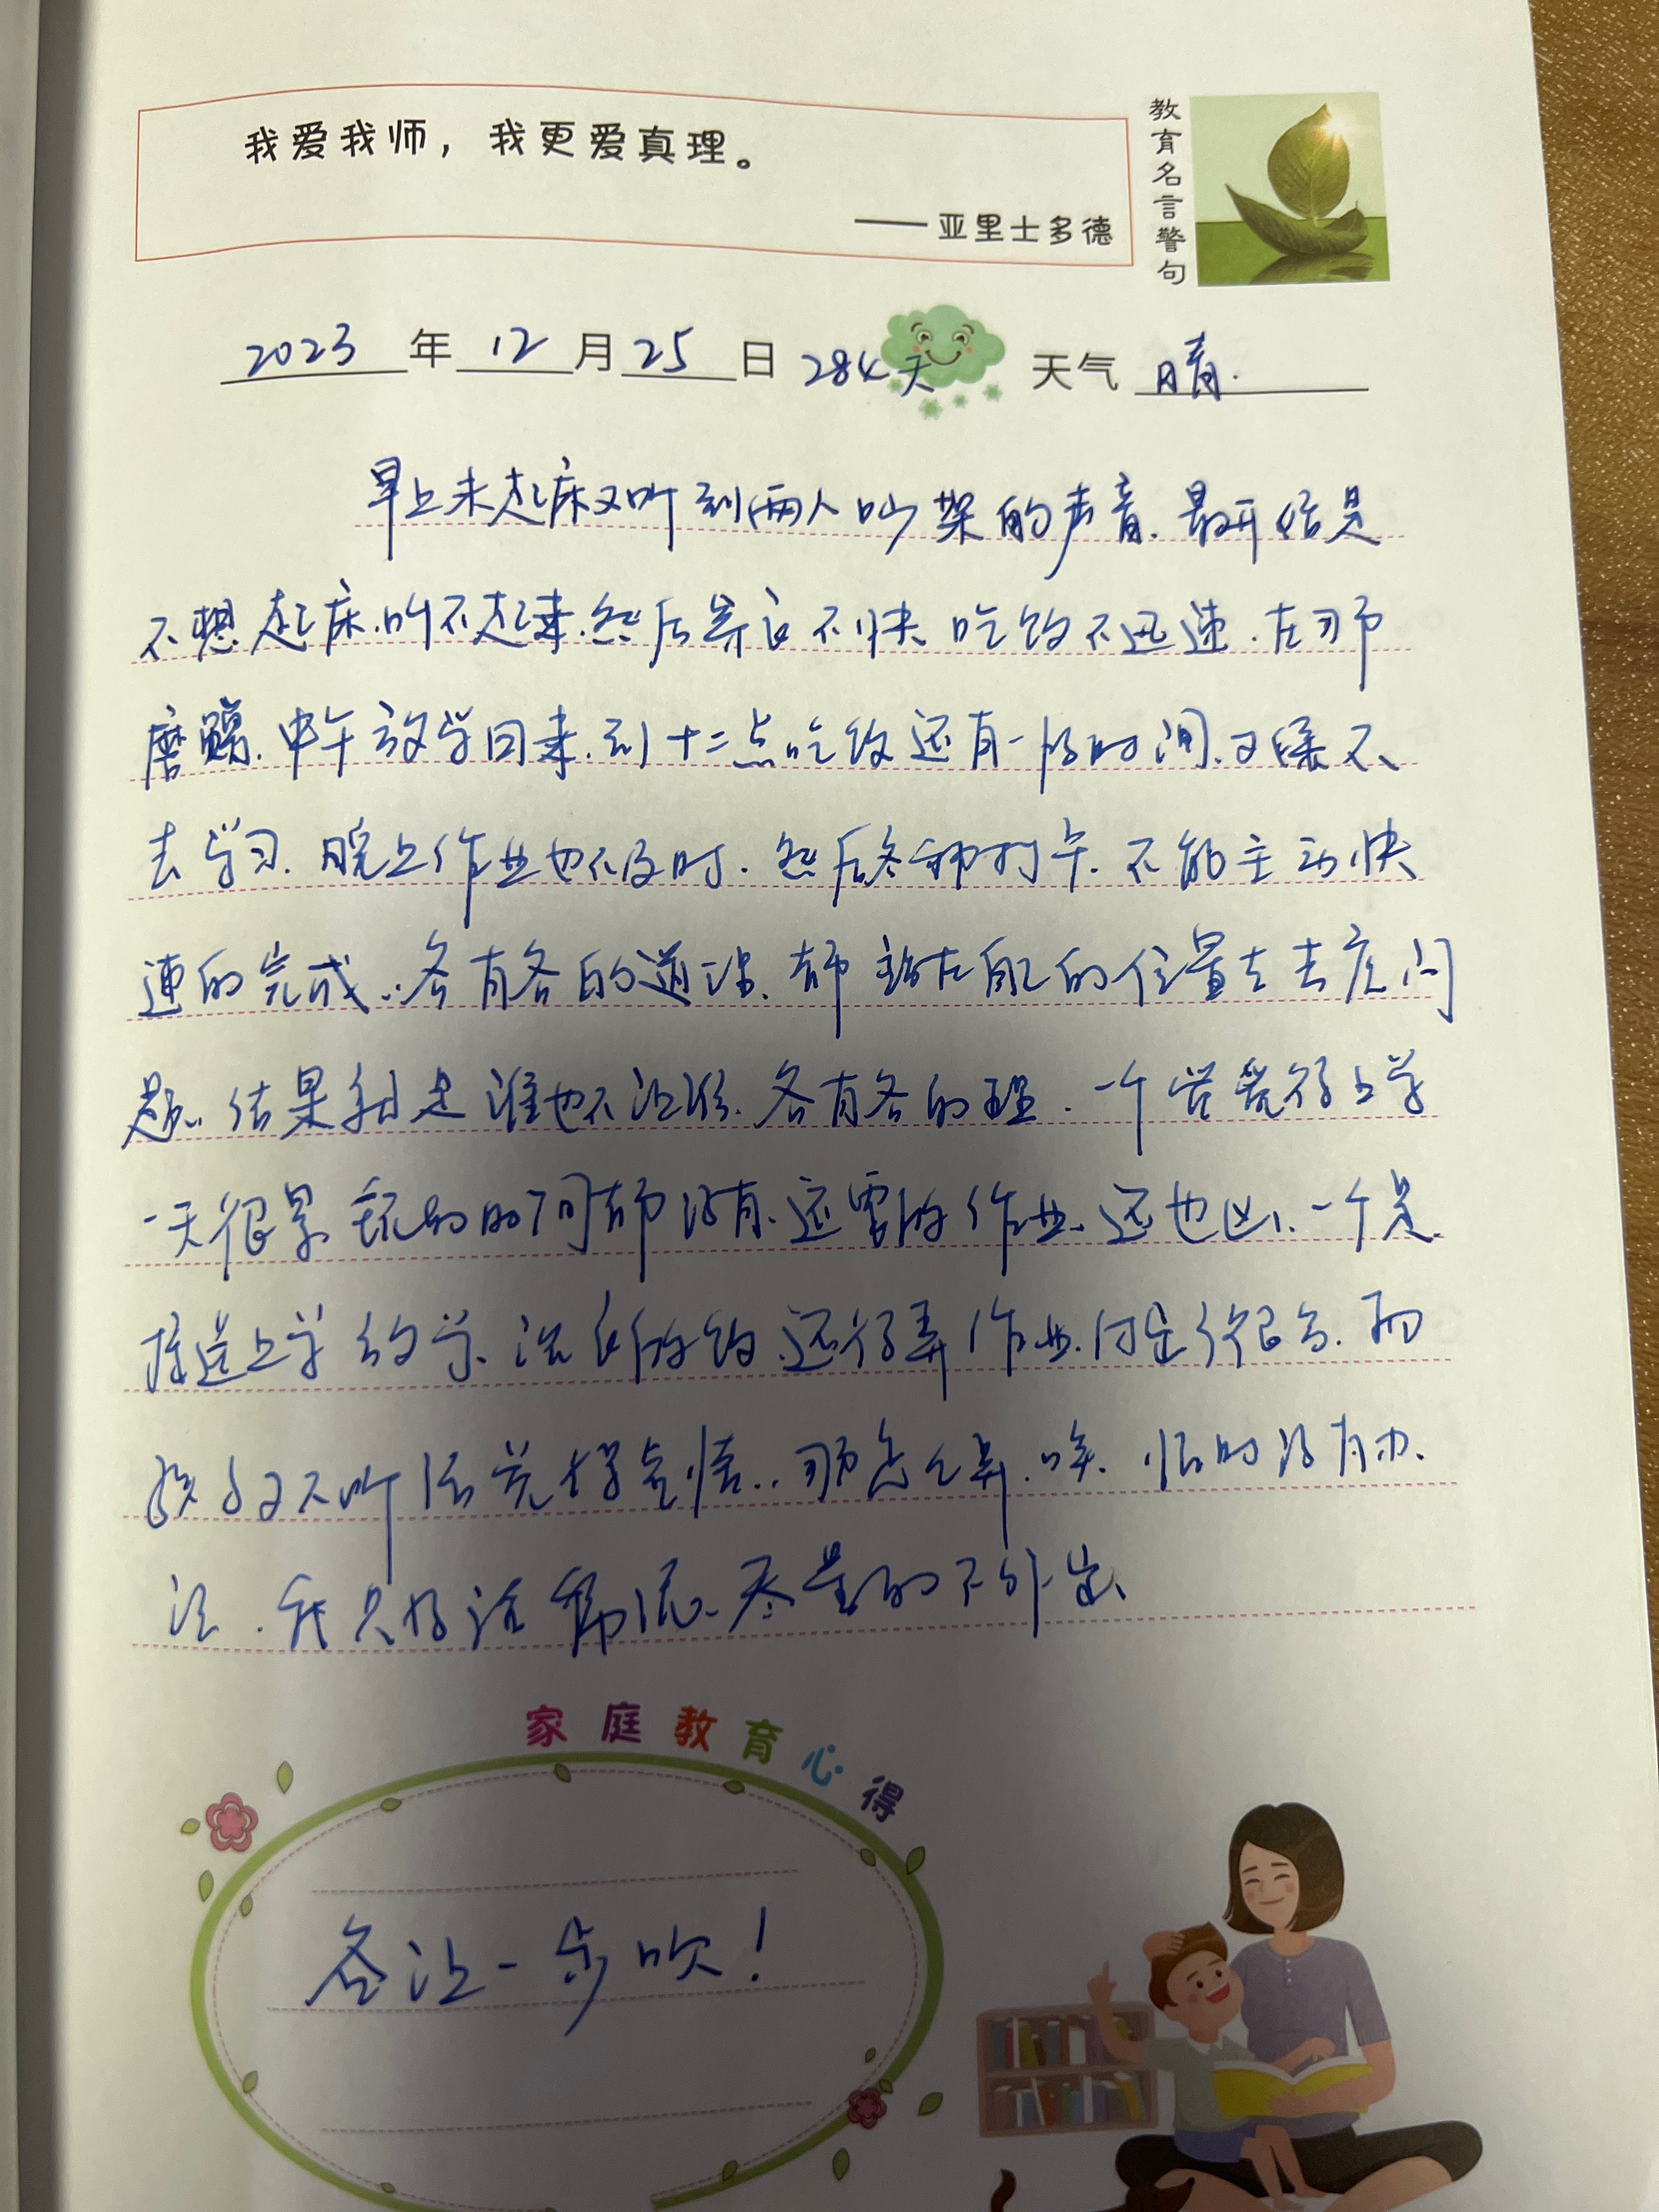 我爱我师，我更爱真理。
——亚里士多德
教育名言警句
2023年12月25日 284天 天气 晴.
早上未起床又听到两人吵架的声音.最开始是
不想起床.叫不起来.然后穿衣不快 吃饭不迅速.在那
磨蹭.中午放学回来.到十二点吃饭还有一段时间.又不
去学习.晚上作业也不及时.然后各种打卡.不能主动快
速的完成..各有各的道理.都站在自己的位置上去应问
题..结果就是谁也不让谁.各有各的理.一个觉得上学
一天很累 玩的时间都没有.还要做作业.还也凶.一个是
接送上学放学.洗衣做饭.还得弄作业.付出很多.而
孩子又不听话觉得委屈..那怎么弄.唉.真的没有办
法.我只好说 尽量的不外出.
家庭教育心得
各让一步吹！